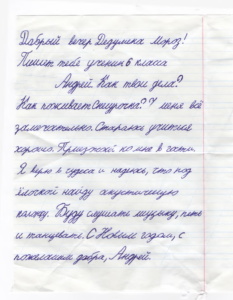 Добрый вечер Дедушка Мороз!
Пишет тебе ученик 6 класса
Андрей. Как твои дела?
Как поживает Снегурочка? У меня всё
замечательно. Стараюсь учиться
хорошо. Приезжай ко мне в гости.
Я верю в чудеса и надеюсь, что под
ёлкой найду акустическую
колонку. Буду слушать музыку, петь
и танцевать. С Новым годом, с
пожеланием добра, Андрей.